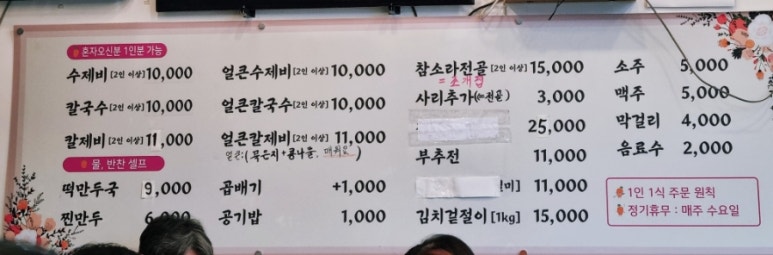 혼자오신분 1인분 가능
수제비 [2인 이상] 10,000
칼국수 [2인 이상] 10,000
칼제비 [2인 이상] 11,000
물, 반찬 셀프
떡만두국 9,000
찐만두
얼큰수제비 [2인 이상] 10,000
얼큰칼국수 [2인 이상] 10,000
얼큰칼제비 [2인 이상] 11,000
곱배기 +1,000
공기밥 1,000
참소라전골 [2인 이상] 15,000
= 조개탕
사리추가 3,000
25,000
부추전 11,000
11,000
김치겉절이 [1kg] 15,000
소주 5,000
맥주 5,000
막걸리 4,000
음료수 2,000
1인 1식 주문 원칙
정기휴무 : 매주 수요일